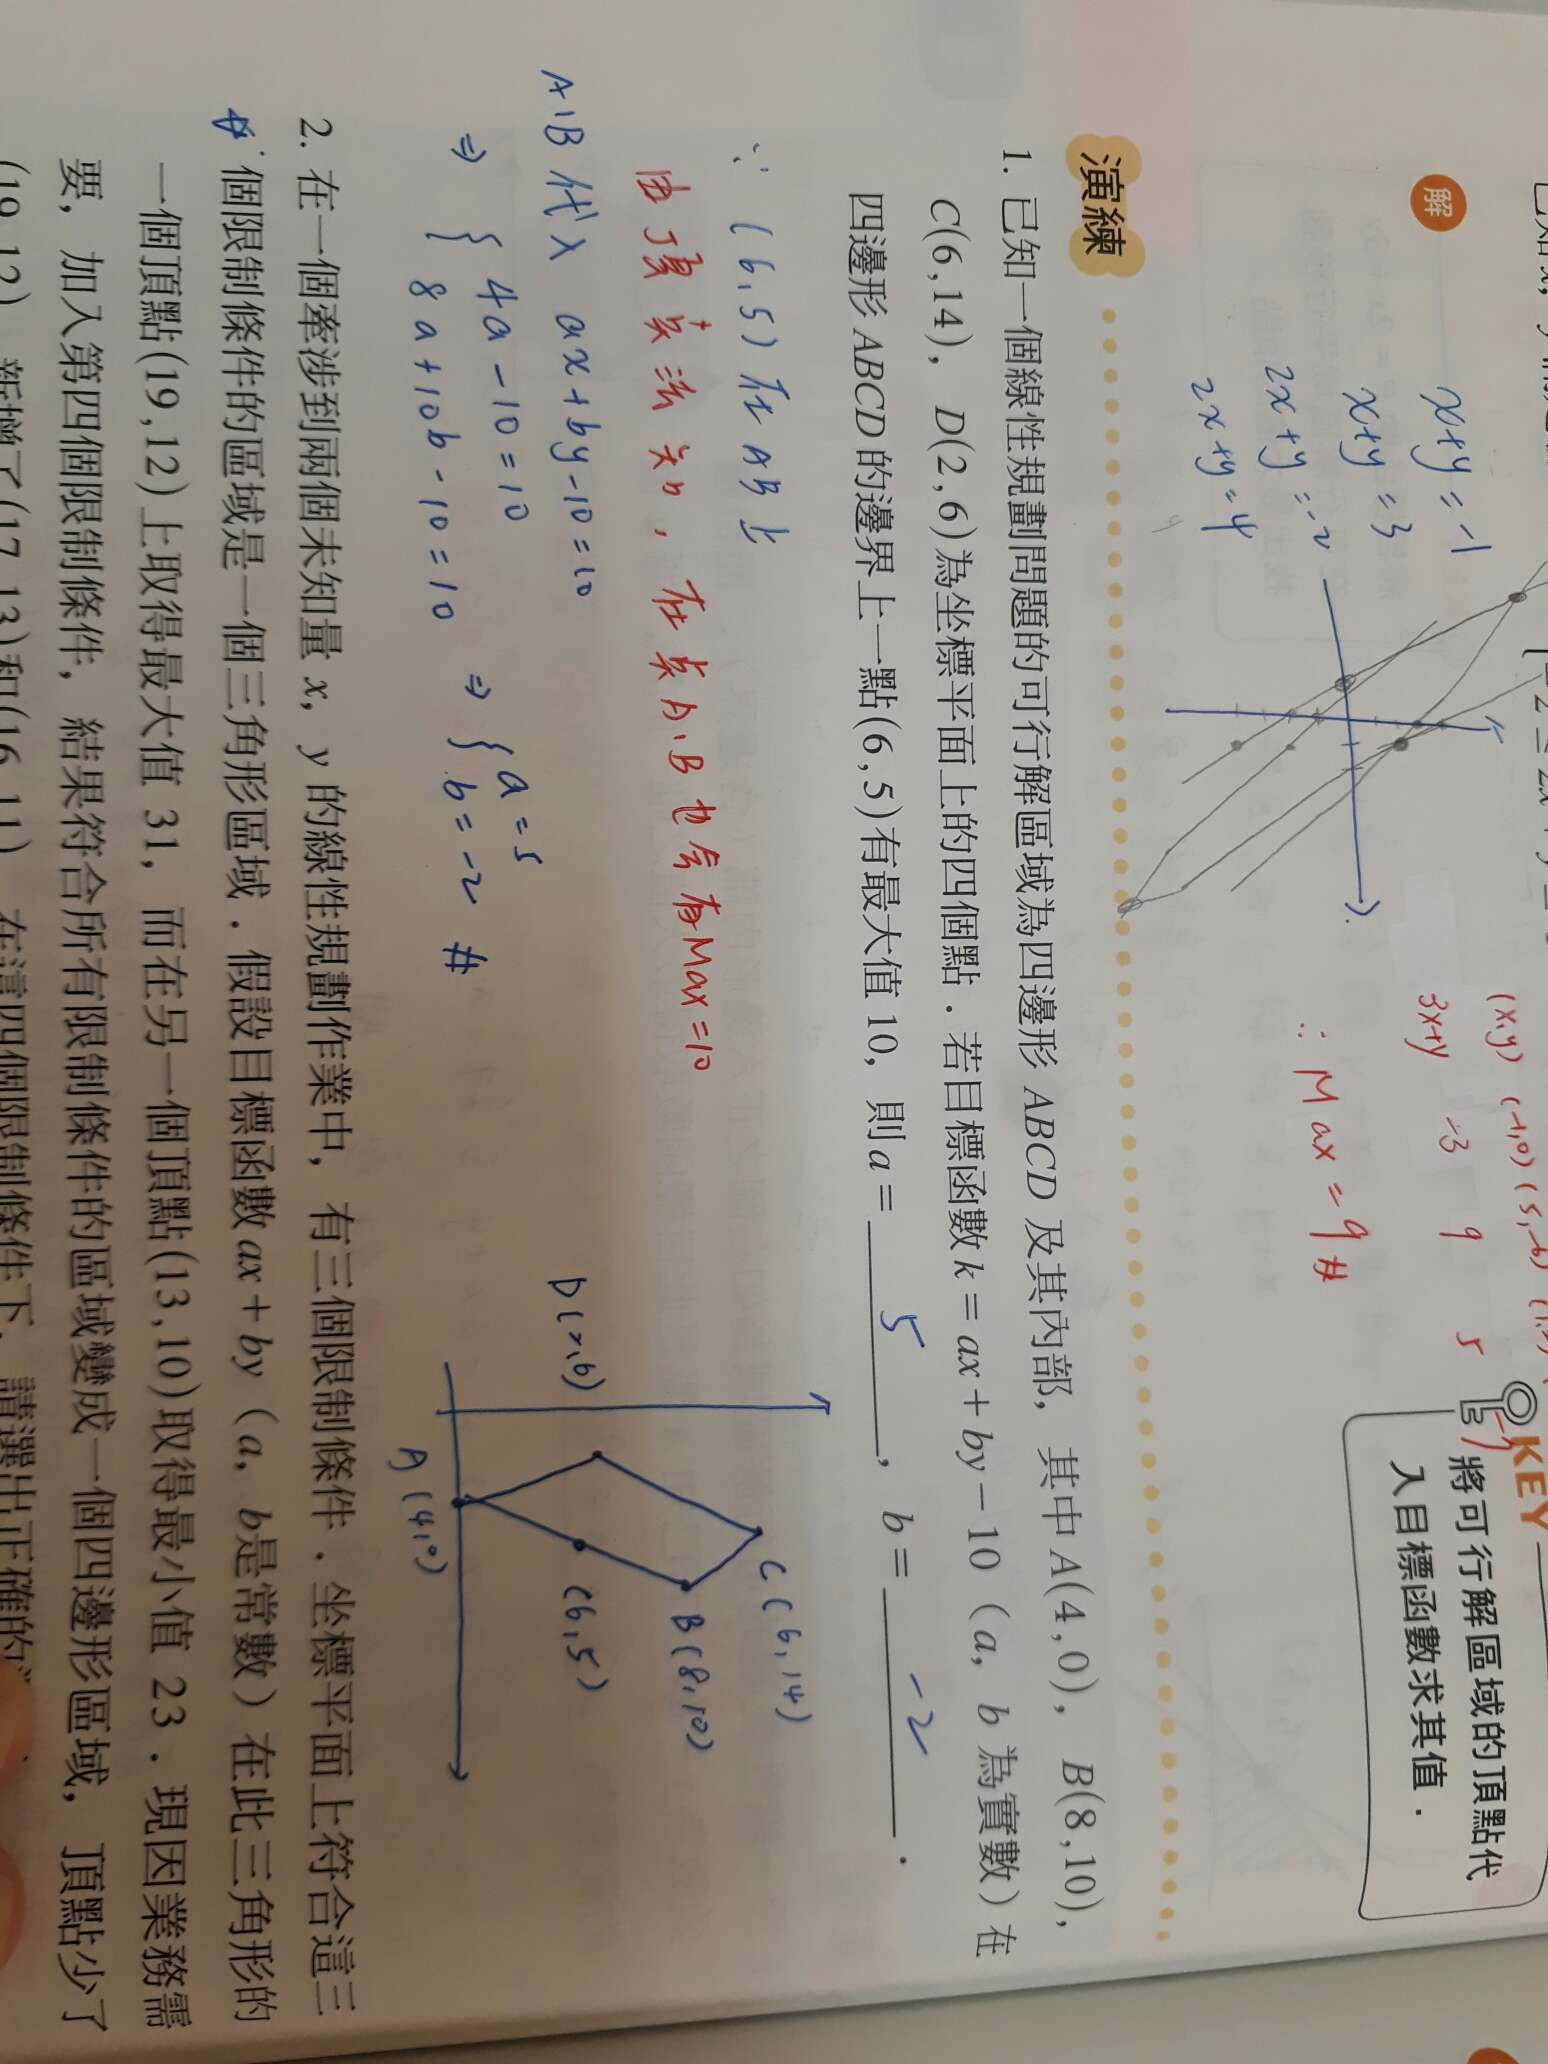 解
x+y=-1
x+y=3
2x+y=-2
2x+y=4
(x,y) (-1,0) (5,-6)
3x+y -3 9 5
∴ Max = 9 #
KEY
將可行解區域的頂點代
入目標函數求其值.
演練
1. 已知一個線性規劃問題的可行解區域為四邊形 ABCD 及其內部, 其中 A(4,0), B(8,10),
C(6,14), D(2,6)為坐標平面上的四個點. 若目標函數 k=ax+by-10 (a, b 為實數) 在
四邊形 ABCD 的邊界上一點(6,5)有最大值 10, 則 a= 5 , b= -2 .
∵ (6,5) 在 AB 上
由頂点法知, 在点A、B也会有Max=10
A、B代入 ax+by-10=10
⇒ { 4a-10=10
8a+10b-10=10
⇒ { a=5
b=-2 #
C(6,14)
B(8,10)
(6,5)
D(2,6)
A(4,0)
2. 在一個牽涉到兩個未知量 x, y 的線性規劃作業中, 有三個限制條件. 坐標平面上符合這三
個限制條件的區域是一個三角形區域. 假設目標函數 ax+by (a, b是常數) 在此三角形的
一個頂點(19,12)上取得最大值 31, 而在另一個頂點(13,10)取得最小值 23. 現因業務需
要, 加入第四個限制條件, 結果符合所有限制條件的區域變成一個四邊形區域, 頂點少了
(19,12), 新增了(17,13)和(16,11). 在這四個限制條件下, 請選出正確的